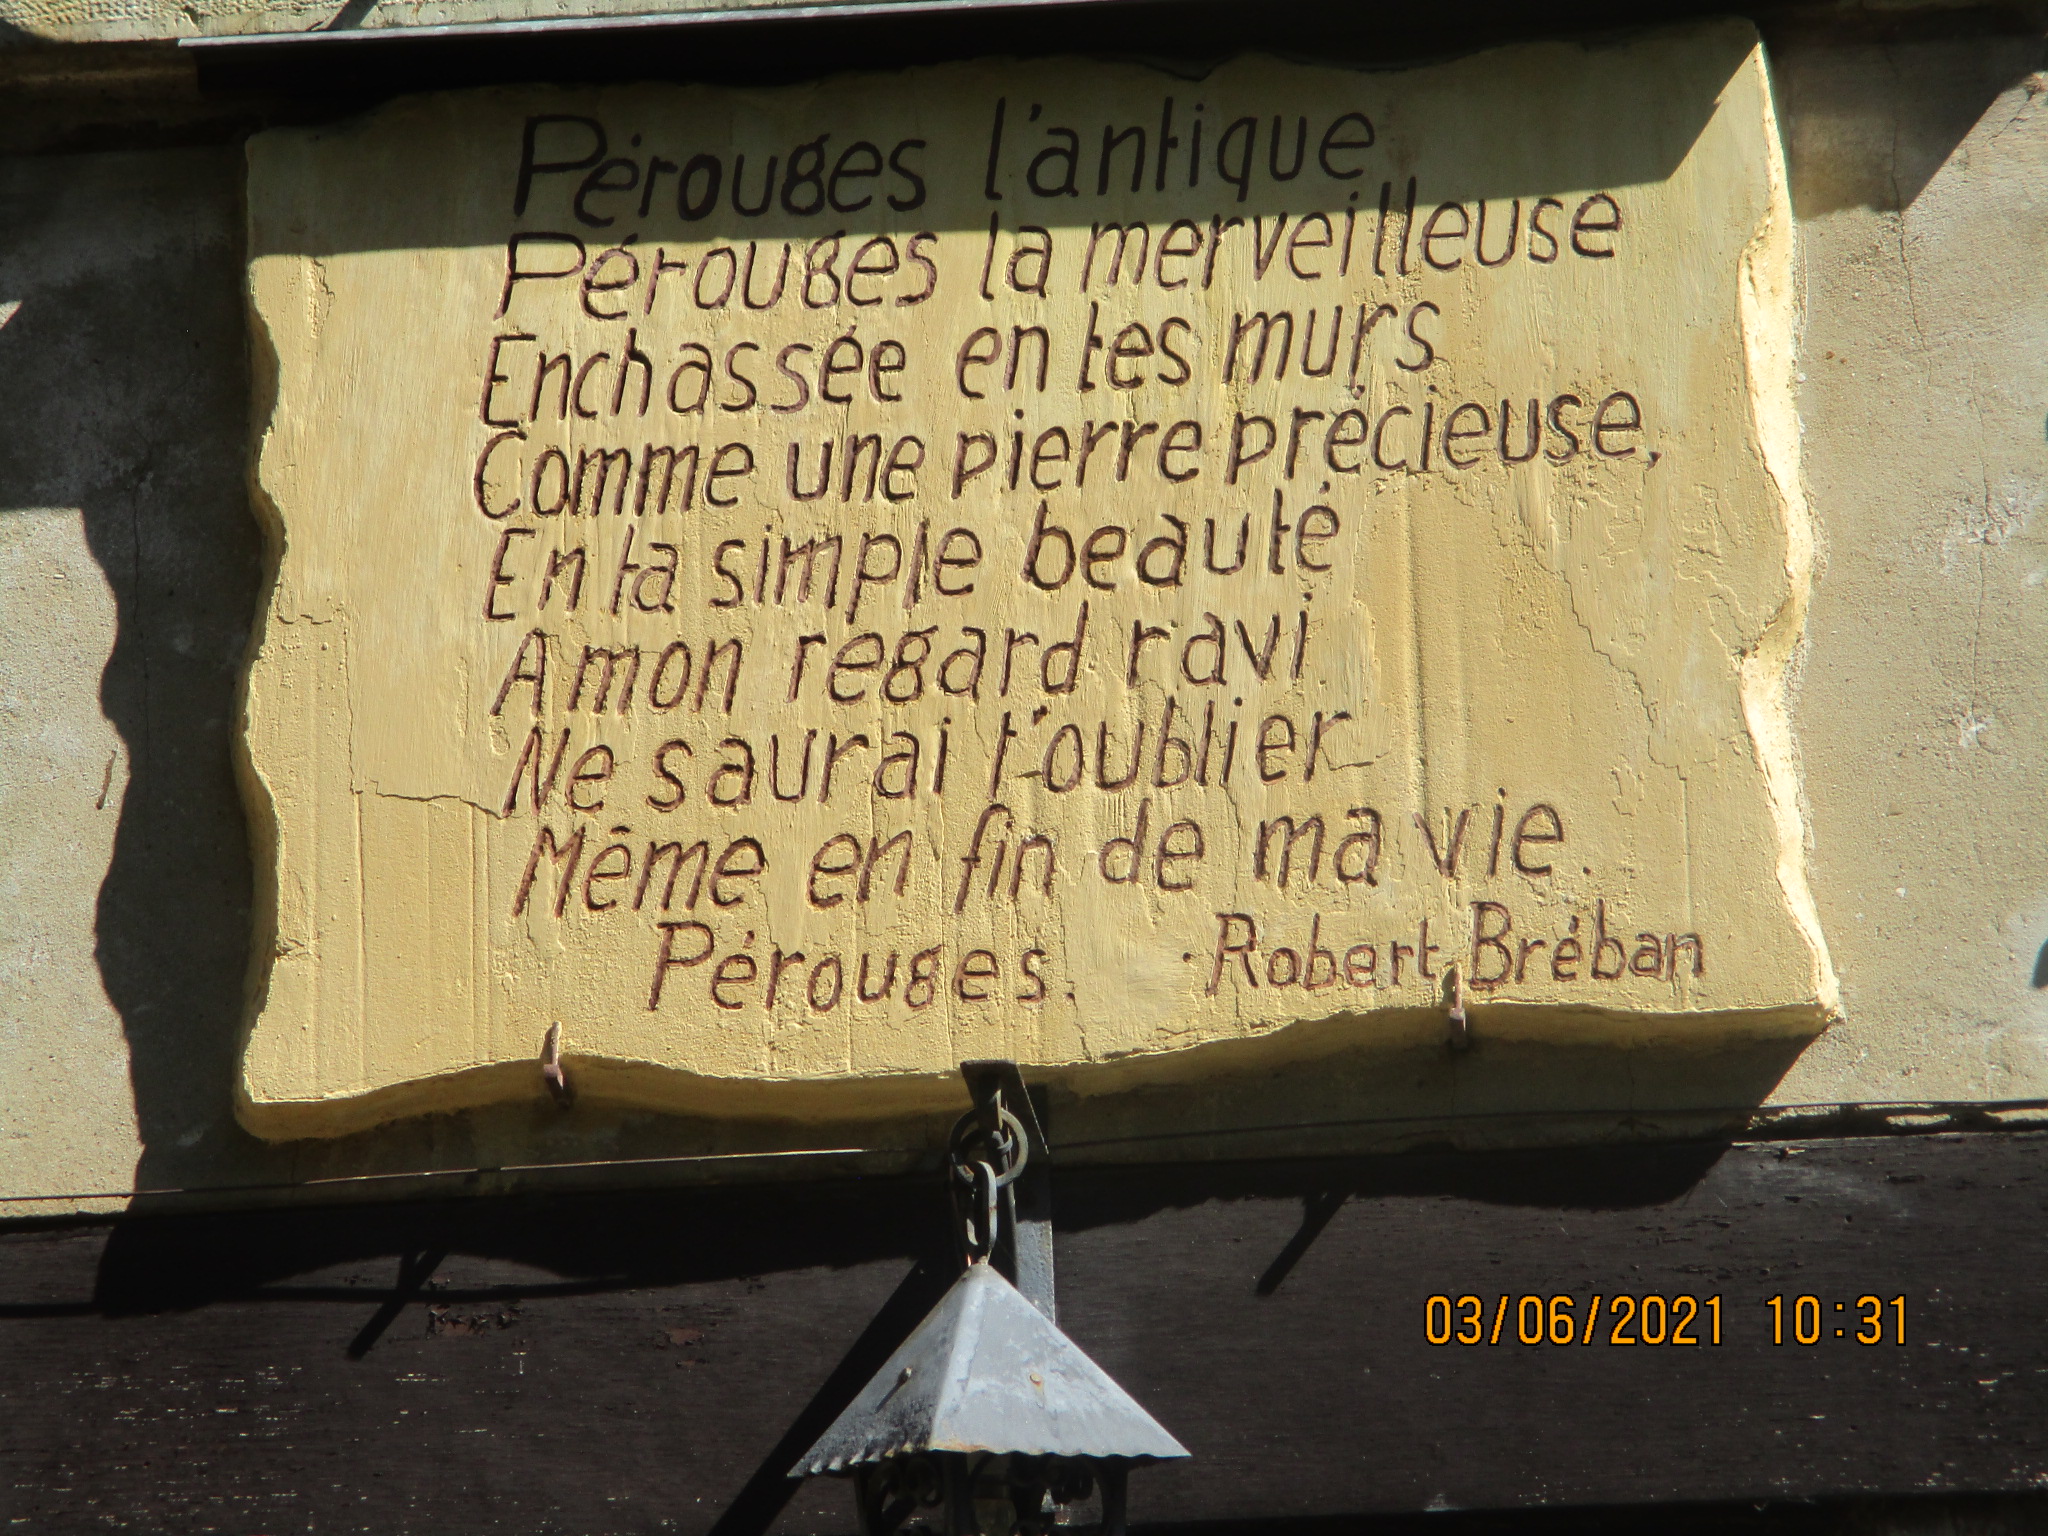 Pérouges l'antique
Pérouges la merveilleuse
Enchassée en tes murs
Comme une pierre précieuse,
En ta simple beauté
A mon regard ravi
Ne saurai t'oublier
Même en fin de ma vie.
Pérouges. Robert Bréban
03/06/2021 10:31